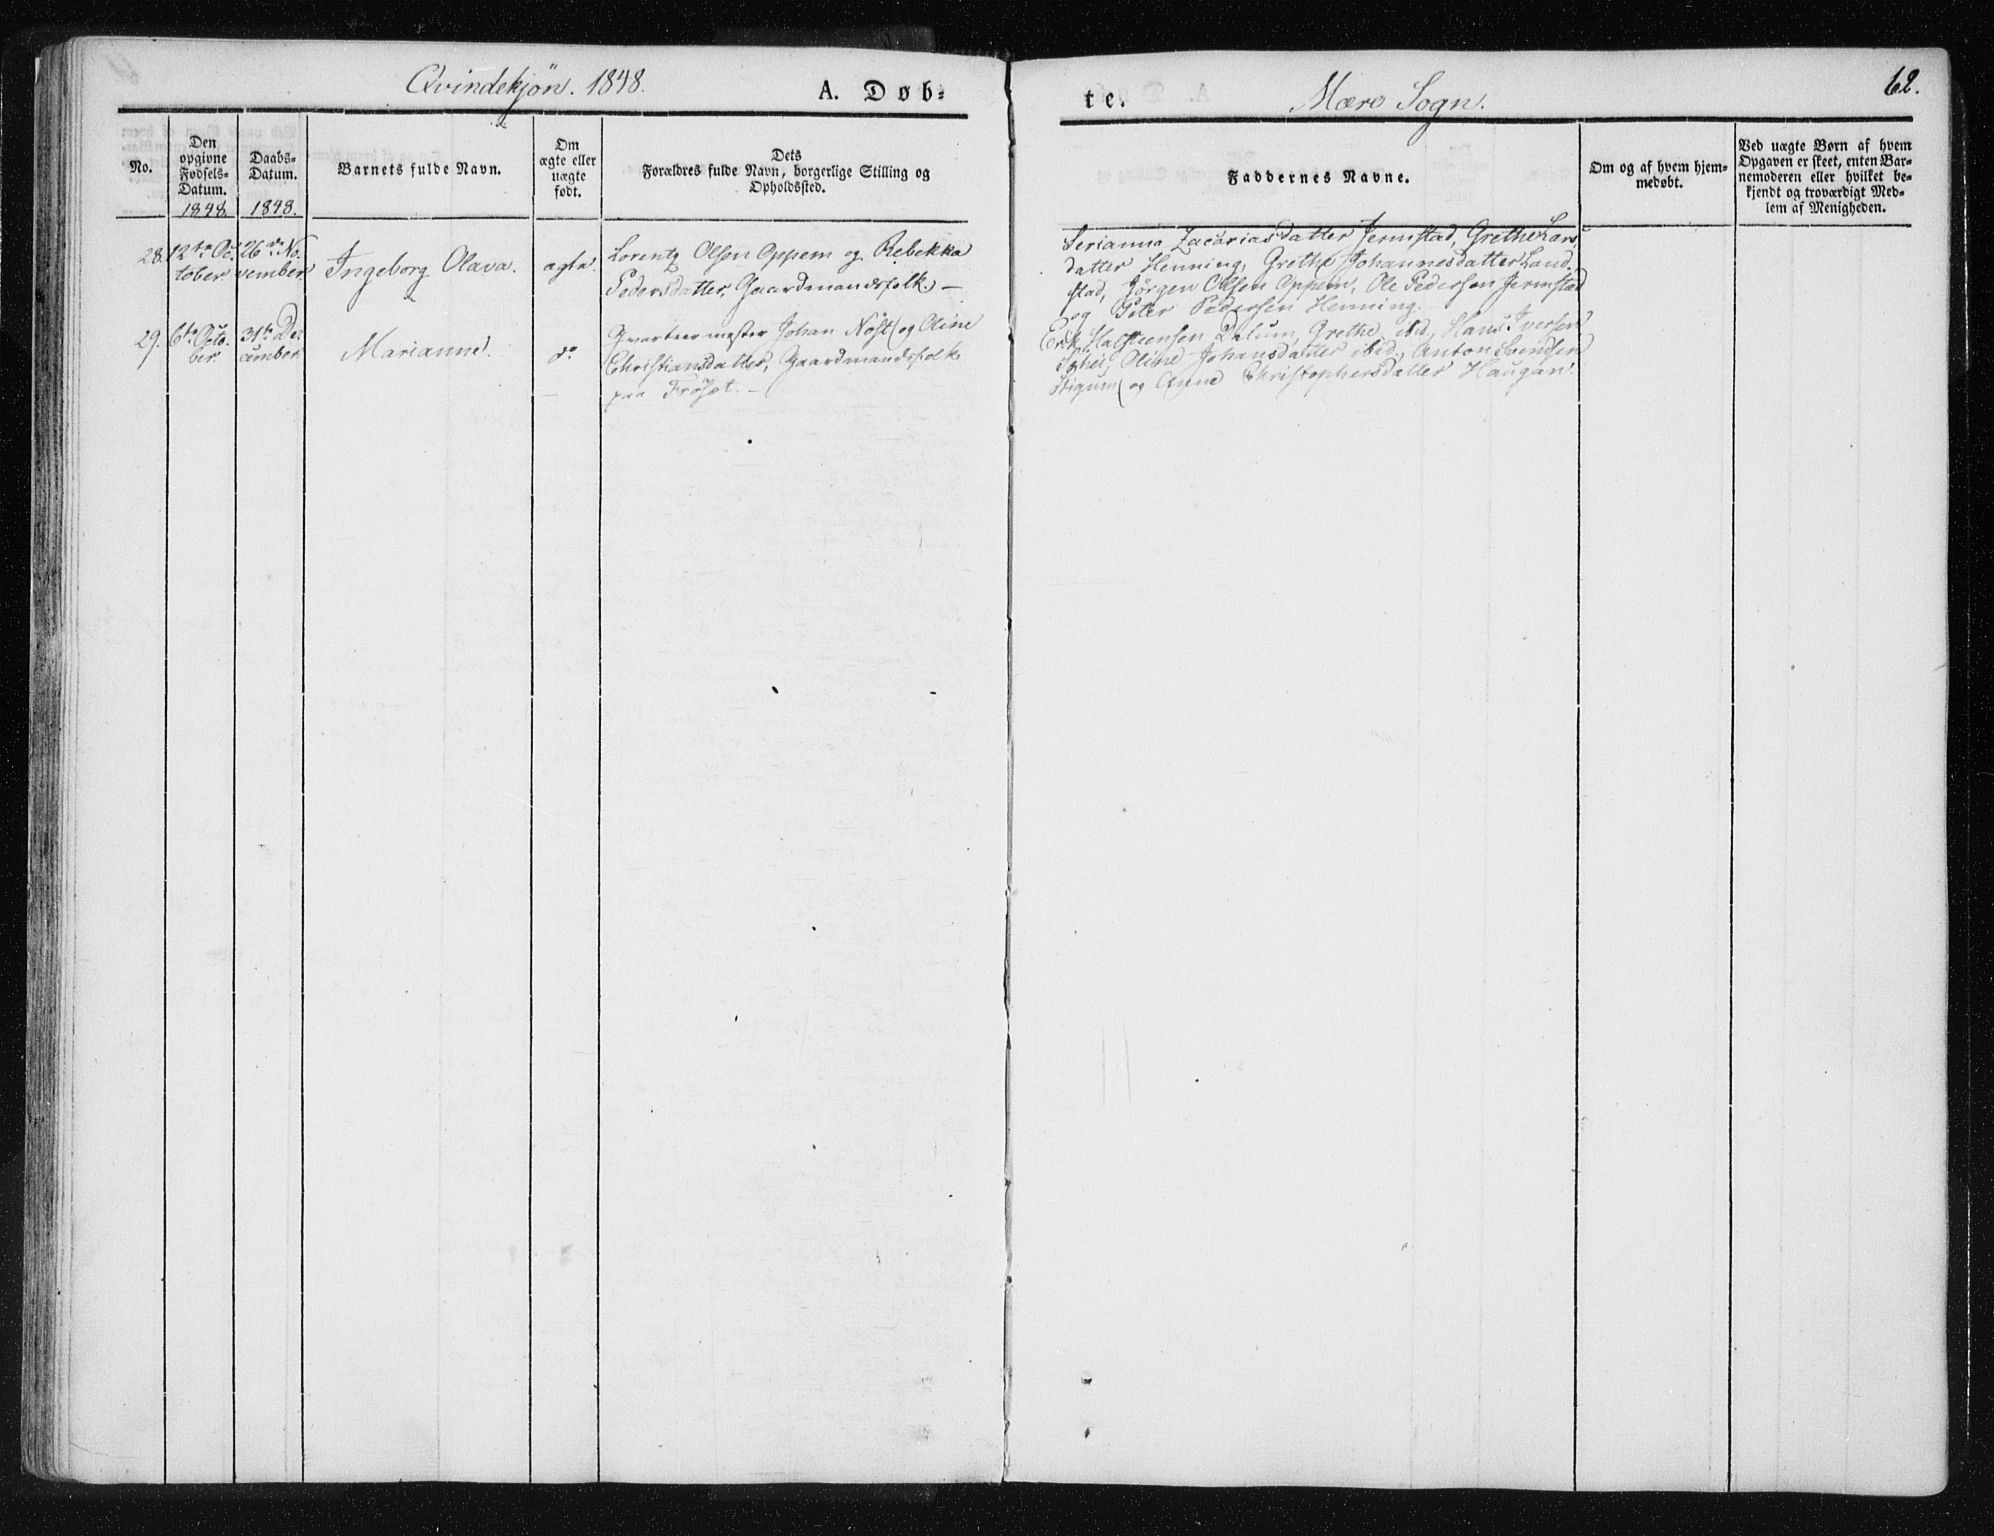 Qvindekjön. 1848.
A. Døb-
te.
Mære Sogn.
62.
No.
Den
opgivne
Fødsels-
Datum.
1848
Daabs-
Datum.
1848.
Barnets fulde Navn.
Om
ægte eller
uægte
født.
Dets
Forældres fulde Navn, borgerlige Stilling og
Opholdssted.
Faddernes Navne.
Om og af hvem hjem-
medøbt.
Ved uægte Børn af hvem
Opgaven er skeet, enten Bar-
nemoderen eller hvilket be-
kjendt og troværdigt Med-
lem af Menigheden.
28.
12te Oc
tober
26de No
vember
Ingeborg Olava.
ægte.
Lorentz Olsen Oppem og Rebekka
Pedersdatter, Gaardmandsfolk. —
Serianna Zacariasdatter Jermstad, Grethe Lars
datter Henning, Grethe Johannesdatter Land-
stad, Jörgen Olsen Oppem, Ole Pedersen Jermstad
og Peter Pedersen Henning.
29.
6te Octo
ber.
31te De
cember
Marianne.
do
Qvarteermester Johan Nöst og Oline
Christiansdatter, Gaardmandsfolk
paa Fröset. —
Erik Halsteensen Dalum, Grethe ibid, Hans Iversen
Oline Johansdatter ibid., Anton Svendsen
og Anne Christophersdatter Haugan.